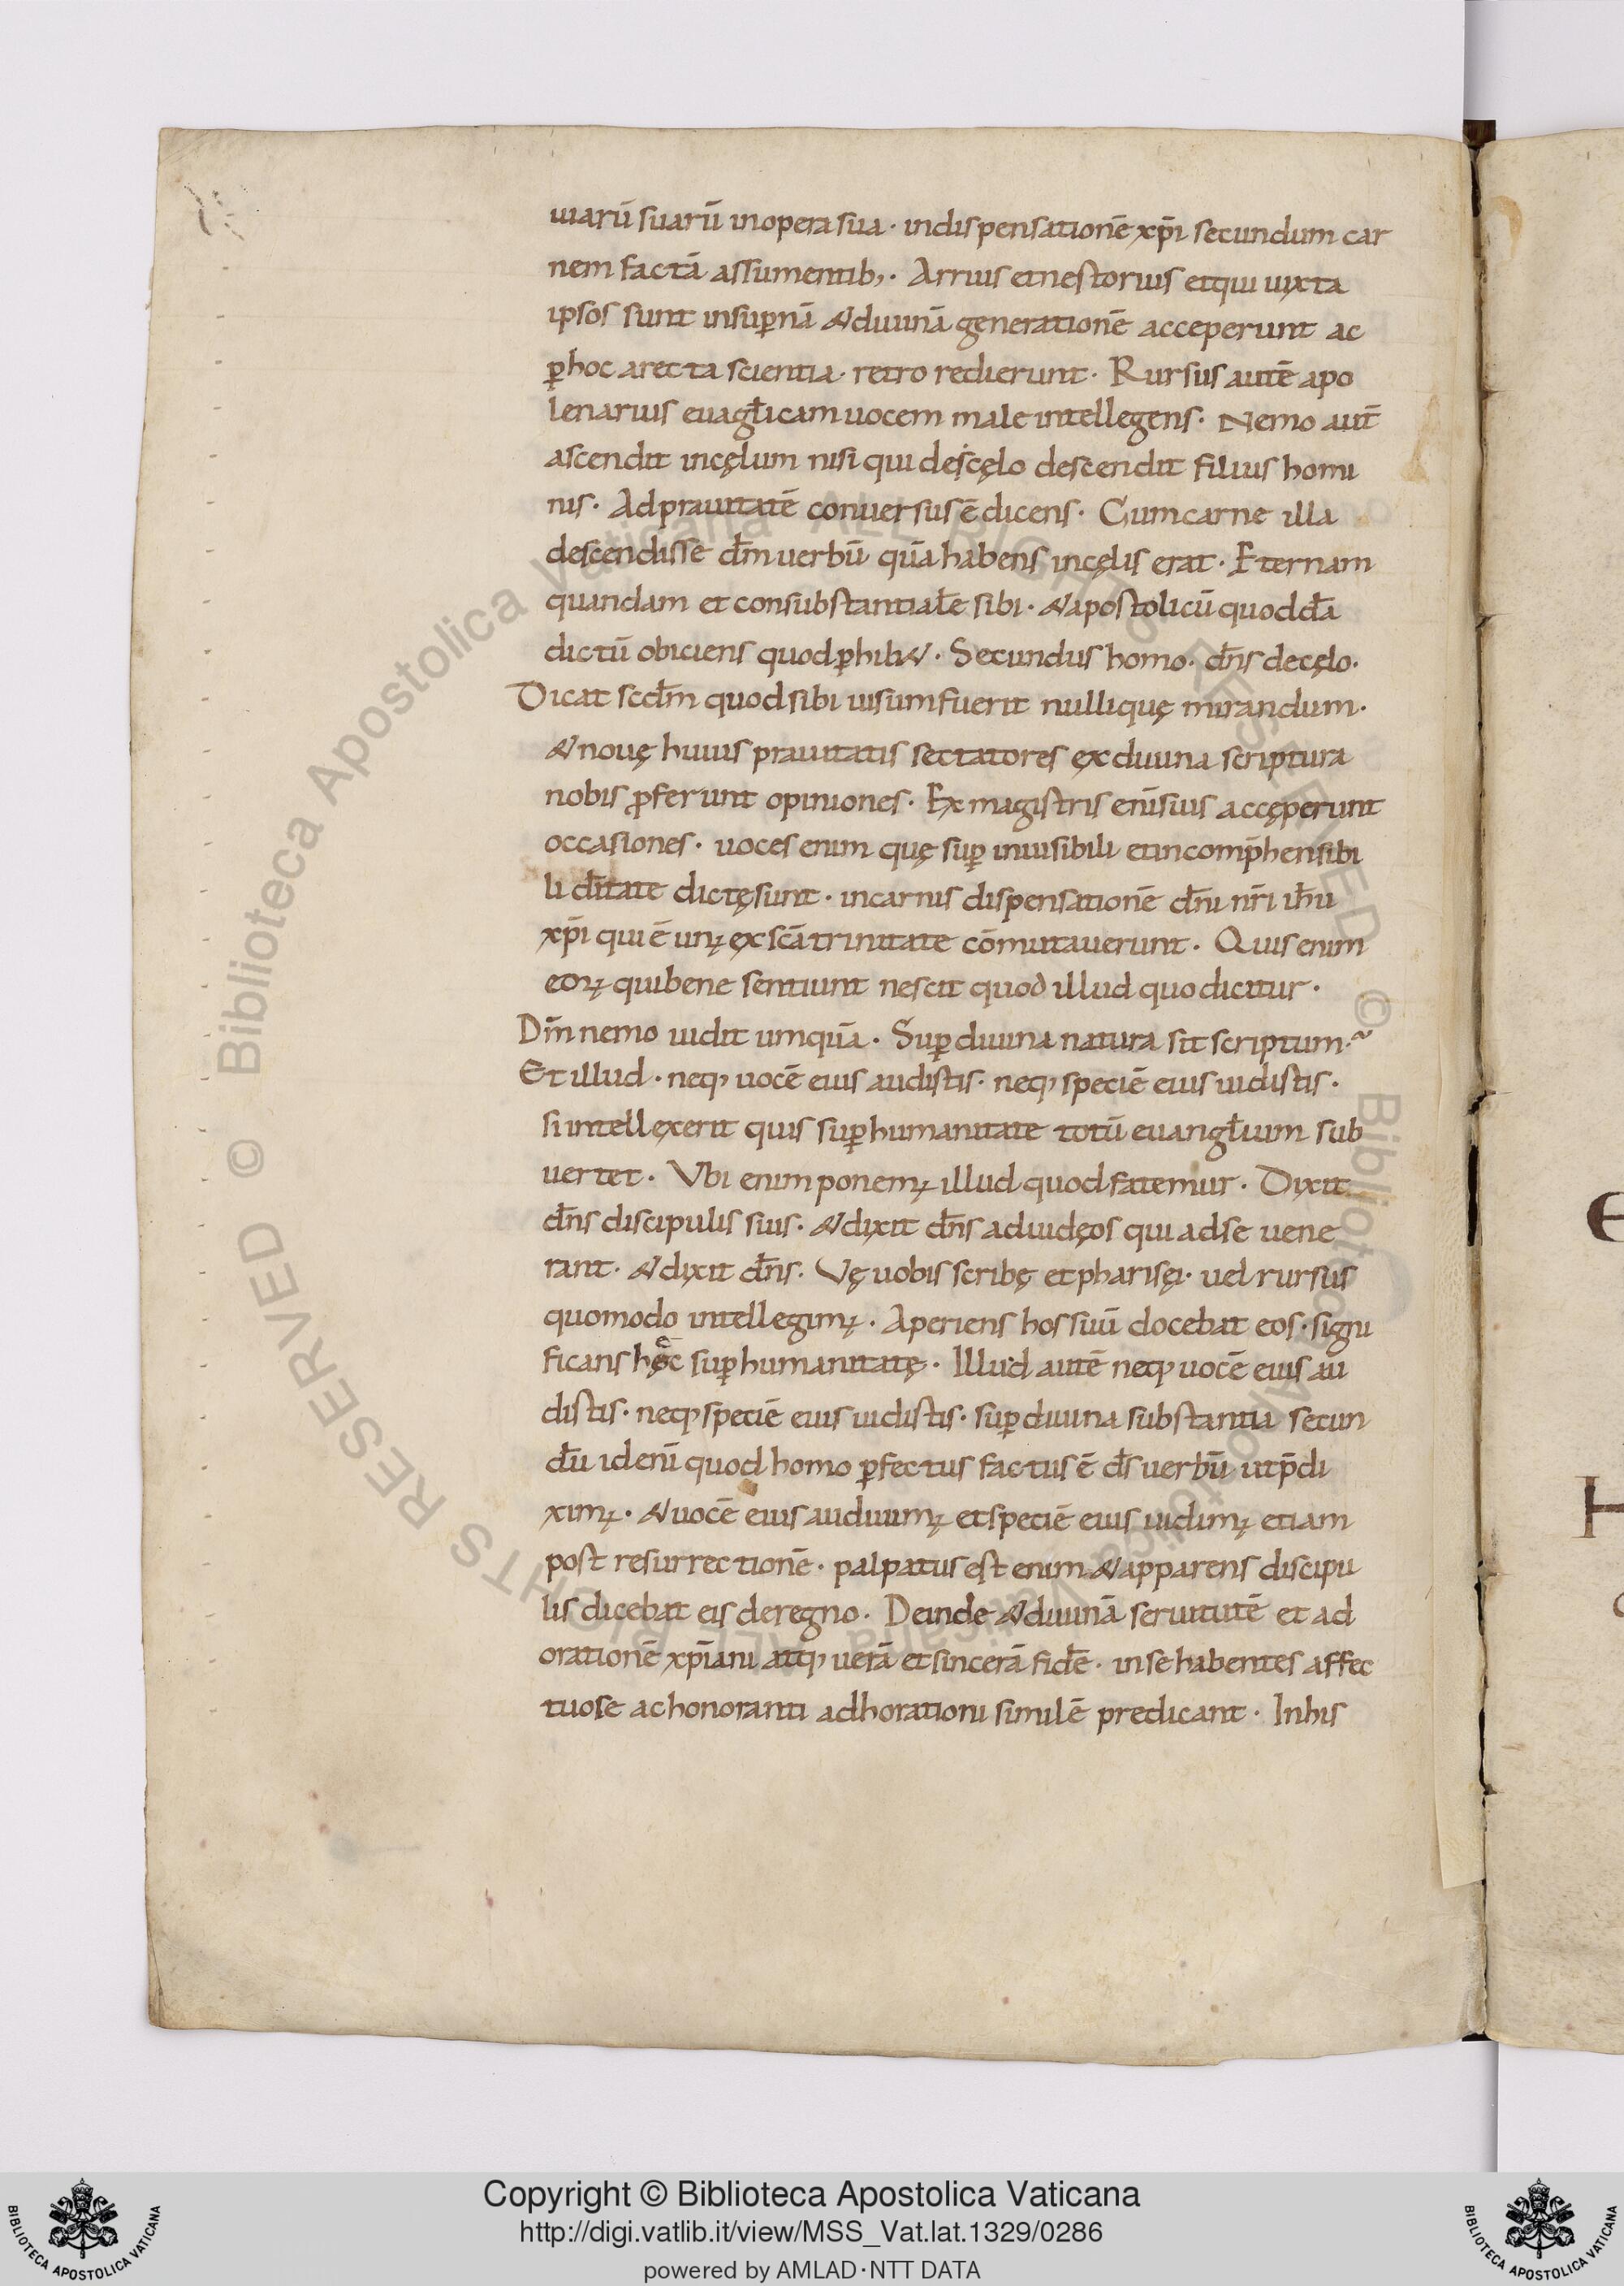 uiarū suarū inopera sua · indispensationē xp̄i secundum car
nem factā assumentib; · Arrius etnestorius etqui iuxta
ipsos sunt insuꝑnā &diuinā generationē acceperunt ac
ꝑhoc arecta scientia · retro redierunt · Rursus autē apo
lenarius euagl̄icam uocem male intellegens · Nemo aut̄
ascendit incęlum nisi qui descęlo descendit filius homi
nis · Adprauitatē conuersus ē dicens · Cumcarne illa
descendisse dm̄ uerbū quā habens incęlis erat · Eternam
quandam et consubstantial̄e sibi · &apostolicū quoddā
dictū obiciens quodꝑhib& · Secundus homo · dn̄s decęlo ·
Dicat scdm̄ quodsibi uisumfuerit nullique̜ mirandum ·
&nouę huius prauitatis sectatores ęxdiuina scriptura
nobis ꝓferunt opiniones · Ex magistris enī suis accęperunt
occasiones · uoces enim quę suꝑ inuisibili etincomp̄hensibi
li dītate dictęsunt · incarnis dispensationē dn̄i nr̄i ih̄u
xp̄i qui ē unꝰ ęx scā trinitate cōmutauerunt · Quis enim
eoꝝ quibene sentiunt nescit quod illud quo dicitur ·
Dm̄ nemo uidit umquā · Suꝑ diuina natura sit scriptum ·~
Et illud · neq; uocē eius audistis · neq; speciē eius uidistis ·
si intellęxerit quis suꝑ humanitate totū euangl̄ium sub
uertet · Vbi enim ponemꝰ illud quod fatemur · Dixit
dn̄s discipulis suis · &dixit dn̄s adiudęos qui adse uene
rant · &dixit dn̄s · Vę uobis scribę et pharisęi · uel rursus
quomodo intellegimꝰ · Aperiens hos suū docebat eos · signi
ficans hęc suꝑ humanitatę · Illud autē neq; uocē eius au
distis · neq; speciē eius uidistis · suꝑ diuina substantia secun
dū id enī quod homo ꝑfectus factus ē ds̄ uerbū utp̄di
ximꝰ · &uocē eius audiuimꝰ etspeciē eius uidimꝰ etiam
post resurrectionē · palpatus est enim &apparens discipu
lis dicebat eis deregno · Deinde &diuinā seruitutē et ad
orationē xp̄iani atq; uerā et sincerā fidē · inse habentes affec
tuose ac honoranti adhorationi similē predicant · Inhis
Copyright © Biblioteca Apostolica Vaticana
http://digi.vatlib.it/view/MSS_Vat.lat.1329/0286
powered by AMLAD·NTT DATA